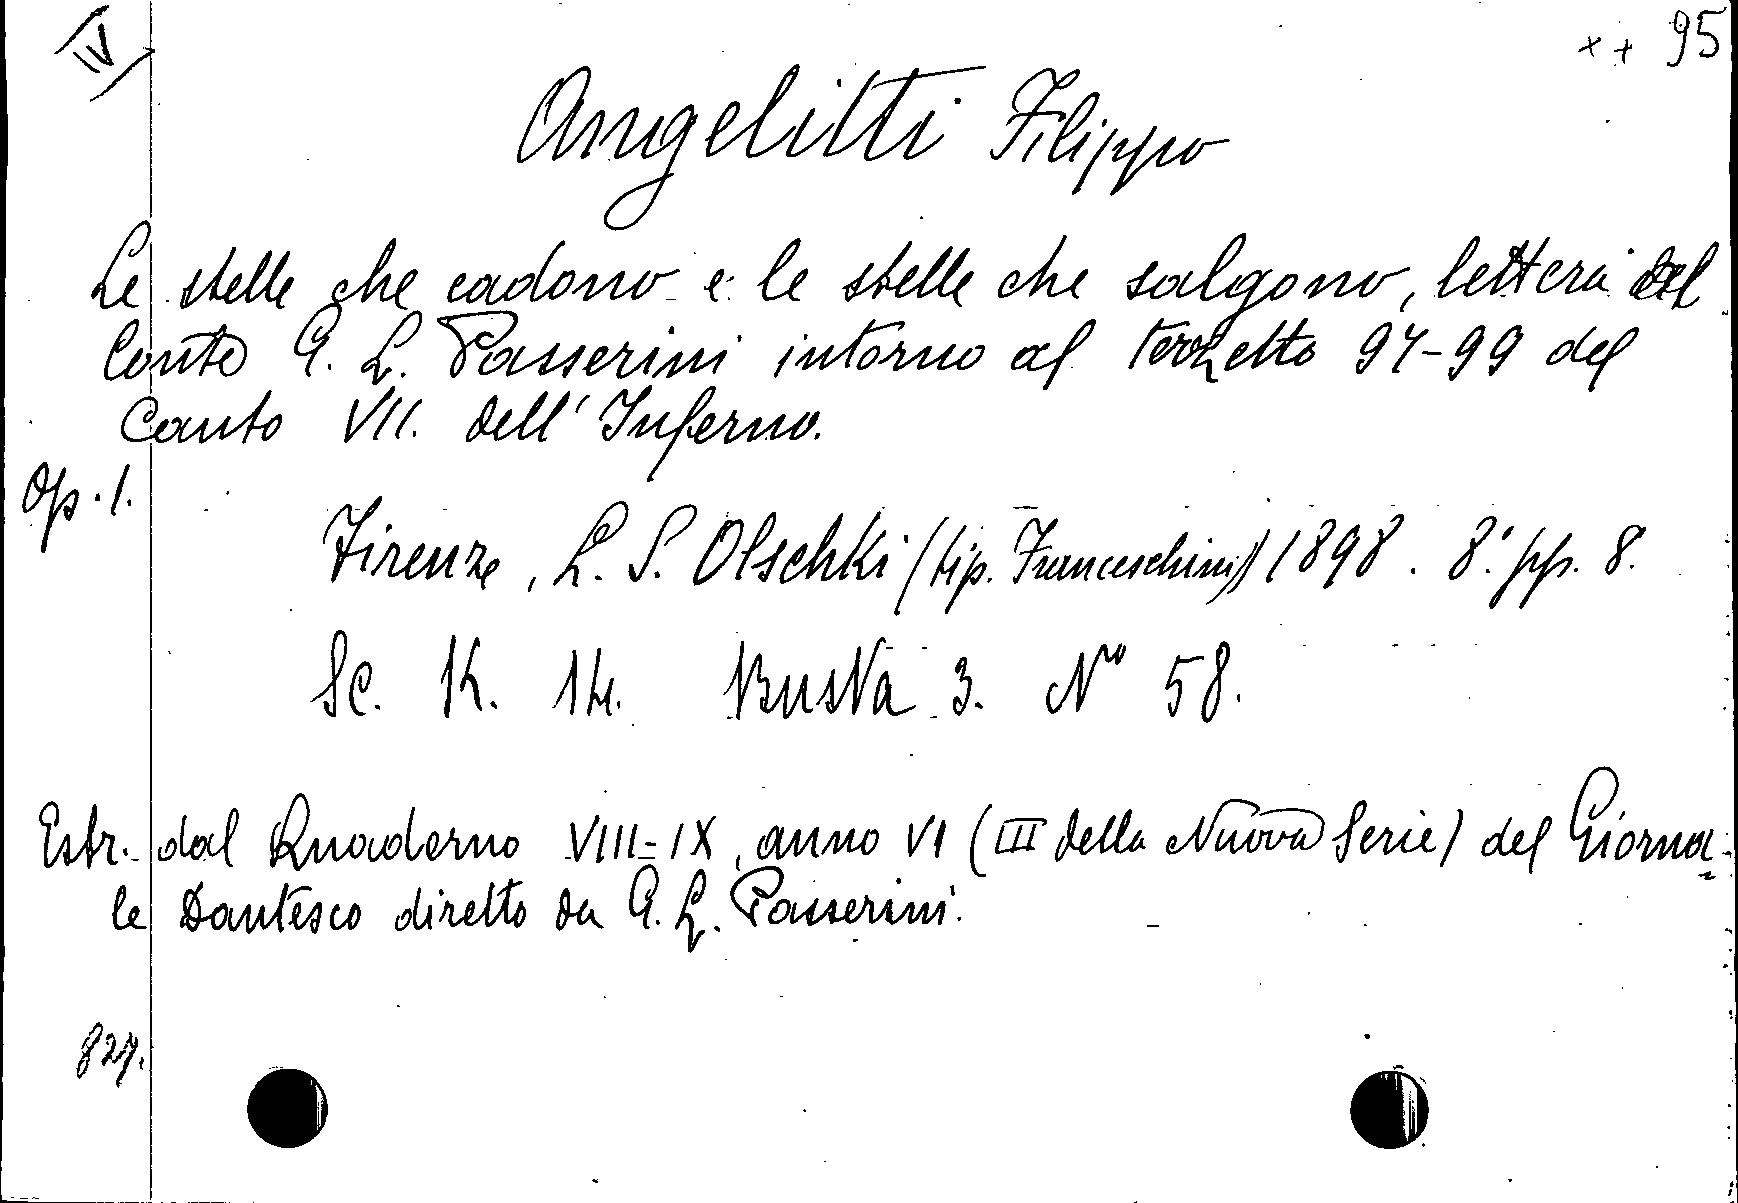 IV
x + 95
Angelitti Filippo
Le stelle che cadono e le stelle che salgono, lettera al
Conte G. L. Passerini intorno al terzetto 97-99 del
Canto VII. dell' Inferno.
Op. 1.
Firenze, L. S. Olschki (tip. Franceschini) 1898. 8.° pp. 8.
Sc. K. 14. Busta 3. N° 58.
Estr. dal Quaderno VIII-IX, anno VI (III della Nuova Serie) del Giorna-
le Dantesco diretto da G. L. Passerini.
827.